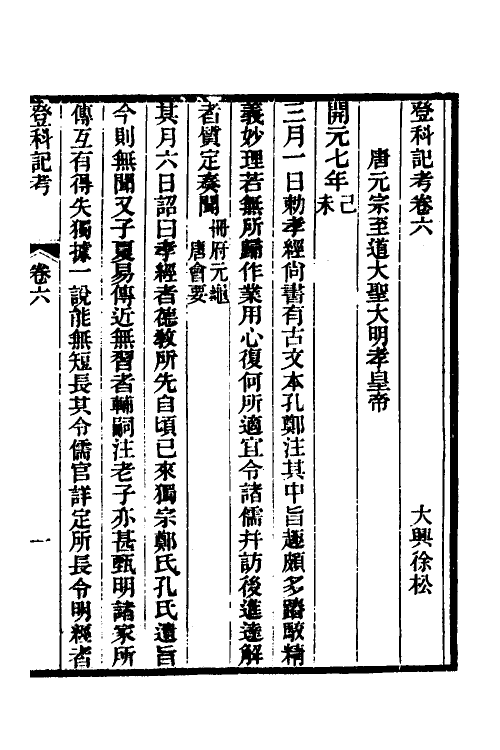 登科記考卷六
大興徐松
唐元宗至道大聖大明孝皇帝
開元七年己未
三月一日勅孝經尚書有古文本孔鄭注其中旨趣頗多踳駁精
義妙理若無所歸作業用心復何所適宜令諸儒幷訪後進達解
者質定奏聞冊府元龜唐會要
其月六日詔曰孝經者德敎所先自頃已來獨宗鄭氏孔氏遺旨
今則無聞又子夏易傳近無習者輔嗣注老子亦甚甄明諸家所
傳互有得失獨據一說能無短長其令儒官詳定所長令明經者
登科記考
卷六
一